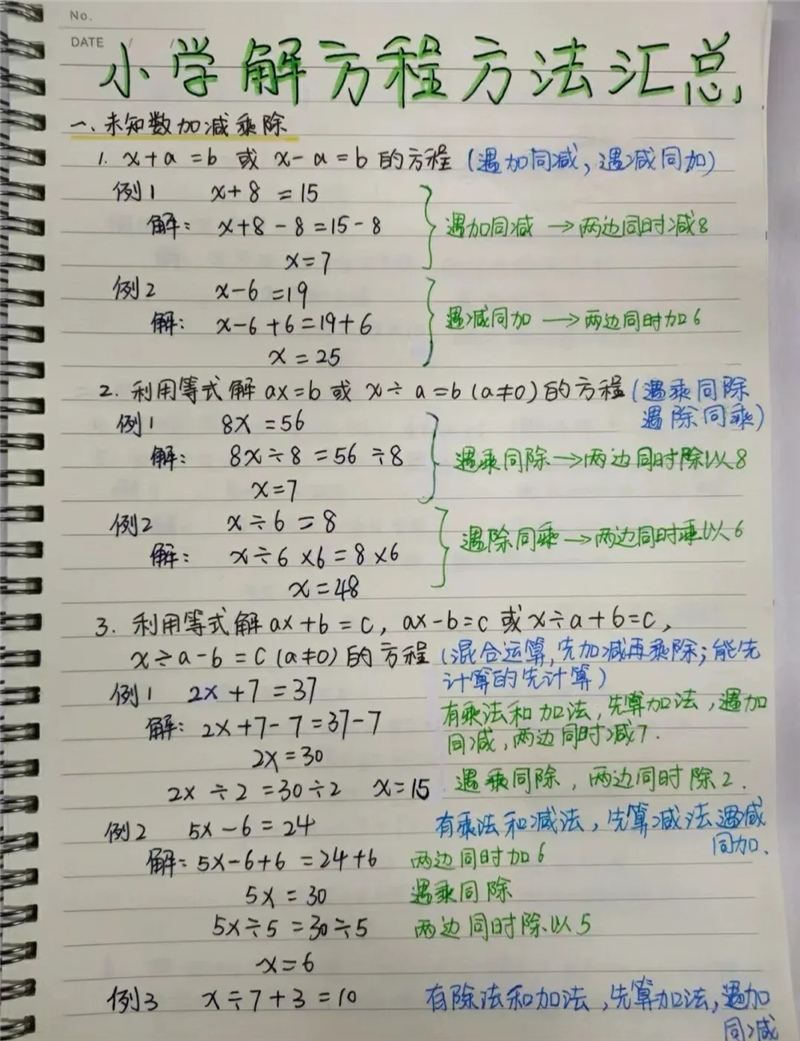 No.
DATE / /
小学解方程方法汇总
一、未知数加减乘除
1. x+a=b 或 x-a=b 的方程 (遇加同减, 遇减同加)
例1 x+8=15
解: x+8-8=15-8 遇加同减 → 两边同时减8
x=7
例2 x-6=19
解: x-6+6=19+6 遇减同加 → 两边同时加6
x=25
2. 利用等式解 ax=b 或 x÷a=b (a≠0) 的方程 (遇乘同除
遇除同乘)
例1 8x=56
解: 8x÷8=56÷8 遇乘同除 → 两边同时除以8
x=7
例2 x÷6=8
解: x÷6×6=8×6 遇除同乘 → 两边同时乘以6
x=48
3. 利用等式解 ax+b=c, ax-b=c 或 x÷a+6=c,
x÷a-6=c (a≠0) 的方程 (混合运算, 先加减再乘除; 能先
计算的先计算)
例1 2x+7=37 有乘法和加法, 先算加法, 遇加
解: 2x+7-7=37-7 同减, 两边同时减7.
2x=30
2x÷2=30÷2 x=15 遇乘同除, 两边同时除2.
例2 5x-6=24 有乘法和减法, 先算减法遇减
同加.
解: 5x-6+6=24+6 两边同时加6
5x=30 遇乘同除
5x÷5=30÷5 两边同时除以5
x=6
例3 x÷7+3=10 有除法和加法, 先算加法, 遇加
同减